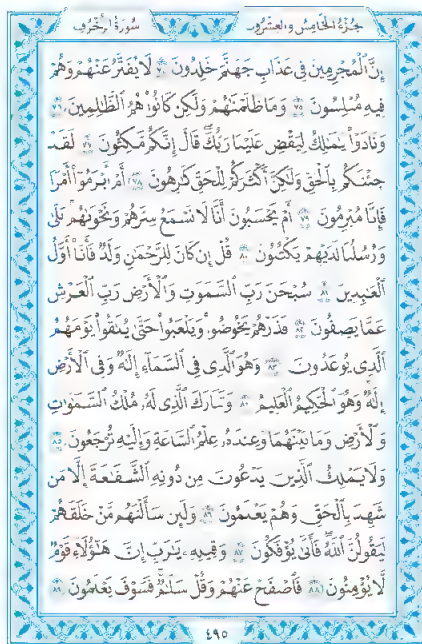 سُورَةُ الزُّخْرُفِ
جُزْءُ الْخَامِسِ وَالْعِشْرُونَ
إِنَّ الْمُجْرِمِينَ فِي عَذَابِ جَهَنَّمَ خَالِدُونَ ٧٤ لَا يُفَتَّرُ عَنْهُمْ وَهُمْ
فِيهِ مُبْلِسُونَ ٧٥ وَمَا ظَلَمْنَاهُمْ وَلَٰكِن كَانُوا هُمُ الظَّالِمِينَ ٧٦
وَنَادَوْا يَامَالِكُ لِيَقْضِ عَلَيْنَا رَبُّكَ قَالَ إِنَّكُم مَّاكِثُونَ ٧٧ لَقَدْ
جِئْنَاكُم بِالْحَقِّ وَلَٰكِنَّ أَكْثَرَكُمْ لِلْحَقِّ كَارِهُونَ ٧٨ أَمْ أَبْرَمُوا أَمْرًا
فَإِنَّا مُبْرِمُونَ ٧٩ أَمْ يَحْسَبُونَ أَنَّا لَا نَسْمَعُ سِرَّهُمْ وَنَجْوَاهُم بَلَىٰ
وَرُسُلُنَا لَدَيْهِمْ يَكْتُبُونَ ٨٠ قُلْ إِن كَانَ لِلرَّحْمَٰنِ وَلَدٌ فَأَنَا أَوَّلُ
الْعَابِدِينَ ٨١ سُبْحَانَ رَبِّ السَّمَاوَاتِ وَالْأَرْضِ رَبِّ الْعَرْشِ
عَمَّا يَصِفُونَ ٨٢ فَذَرْهُمْ يَخُوضُوا وَيَلْعَبُوا حَتَّىٰ يُلَاقُوا يَوْمَهُمُ
الَّذِي يُوعَدُونَ ٨٣ وَهُوَ الَّذِي فِي السَّمَاءِ إِلَٰهٌ وَفِي الْأَرْضِ
إِلَٰهٌ وَهُوَ الْحَكِيمُ الْعَلِيمُ ٨٤ وَتَبَارَكَ الَّذِي لَهُ مُلْكُ السَّمَاوَاتِ
وَالْأَرْضِ وَمَا بَيْنَهُمَا وَعِندَهُ عِلْمُ السَّاعَةِ وَإِلَيْهِ تُرْجَعُونَ ٨٥
وَلَا يَمْلِكُ الَّذِينَ يَدْعُونَ مِن دُونِهِ الشَّفَاعَةَ إِلَّا مَن
شَهِدَ بِالْحَقِّ وَهُمْ يَعْلَمُونَ ٨٦ وَلَئِن سَأَلْتَهُم مَّنْ خَلَقَهُمْ
لَيَقُولُنَّ اللَّهُ فَأَنَّىٰ يُؤْفَكُونَ ٨٧ وَقِيلِهِ يَارَبِّ إِنَّ هَٰؤُلَاءِ قَوْمٌ
لَّا يُؤْمِنُونَ ٨٨ فَاصْفَحْ عَنْهُمْ وَقُلْ سَلَامٌ فَسَوْفَ يَعْلَمُونَ ٨٩
٤٩٥